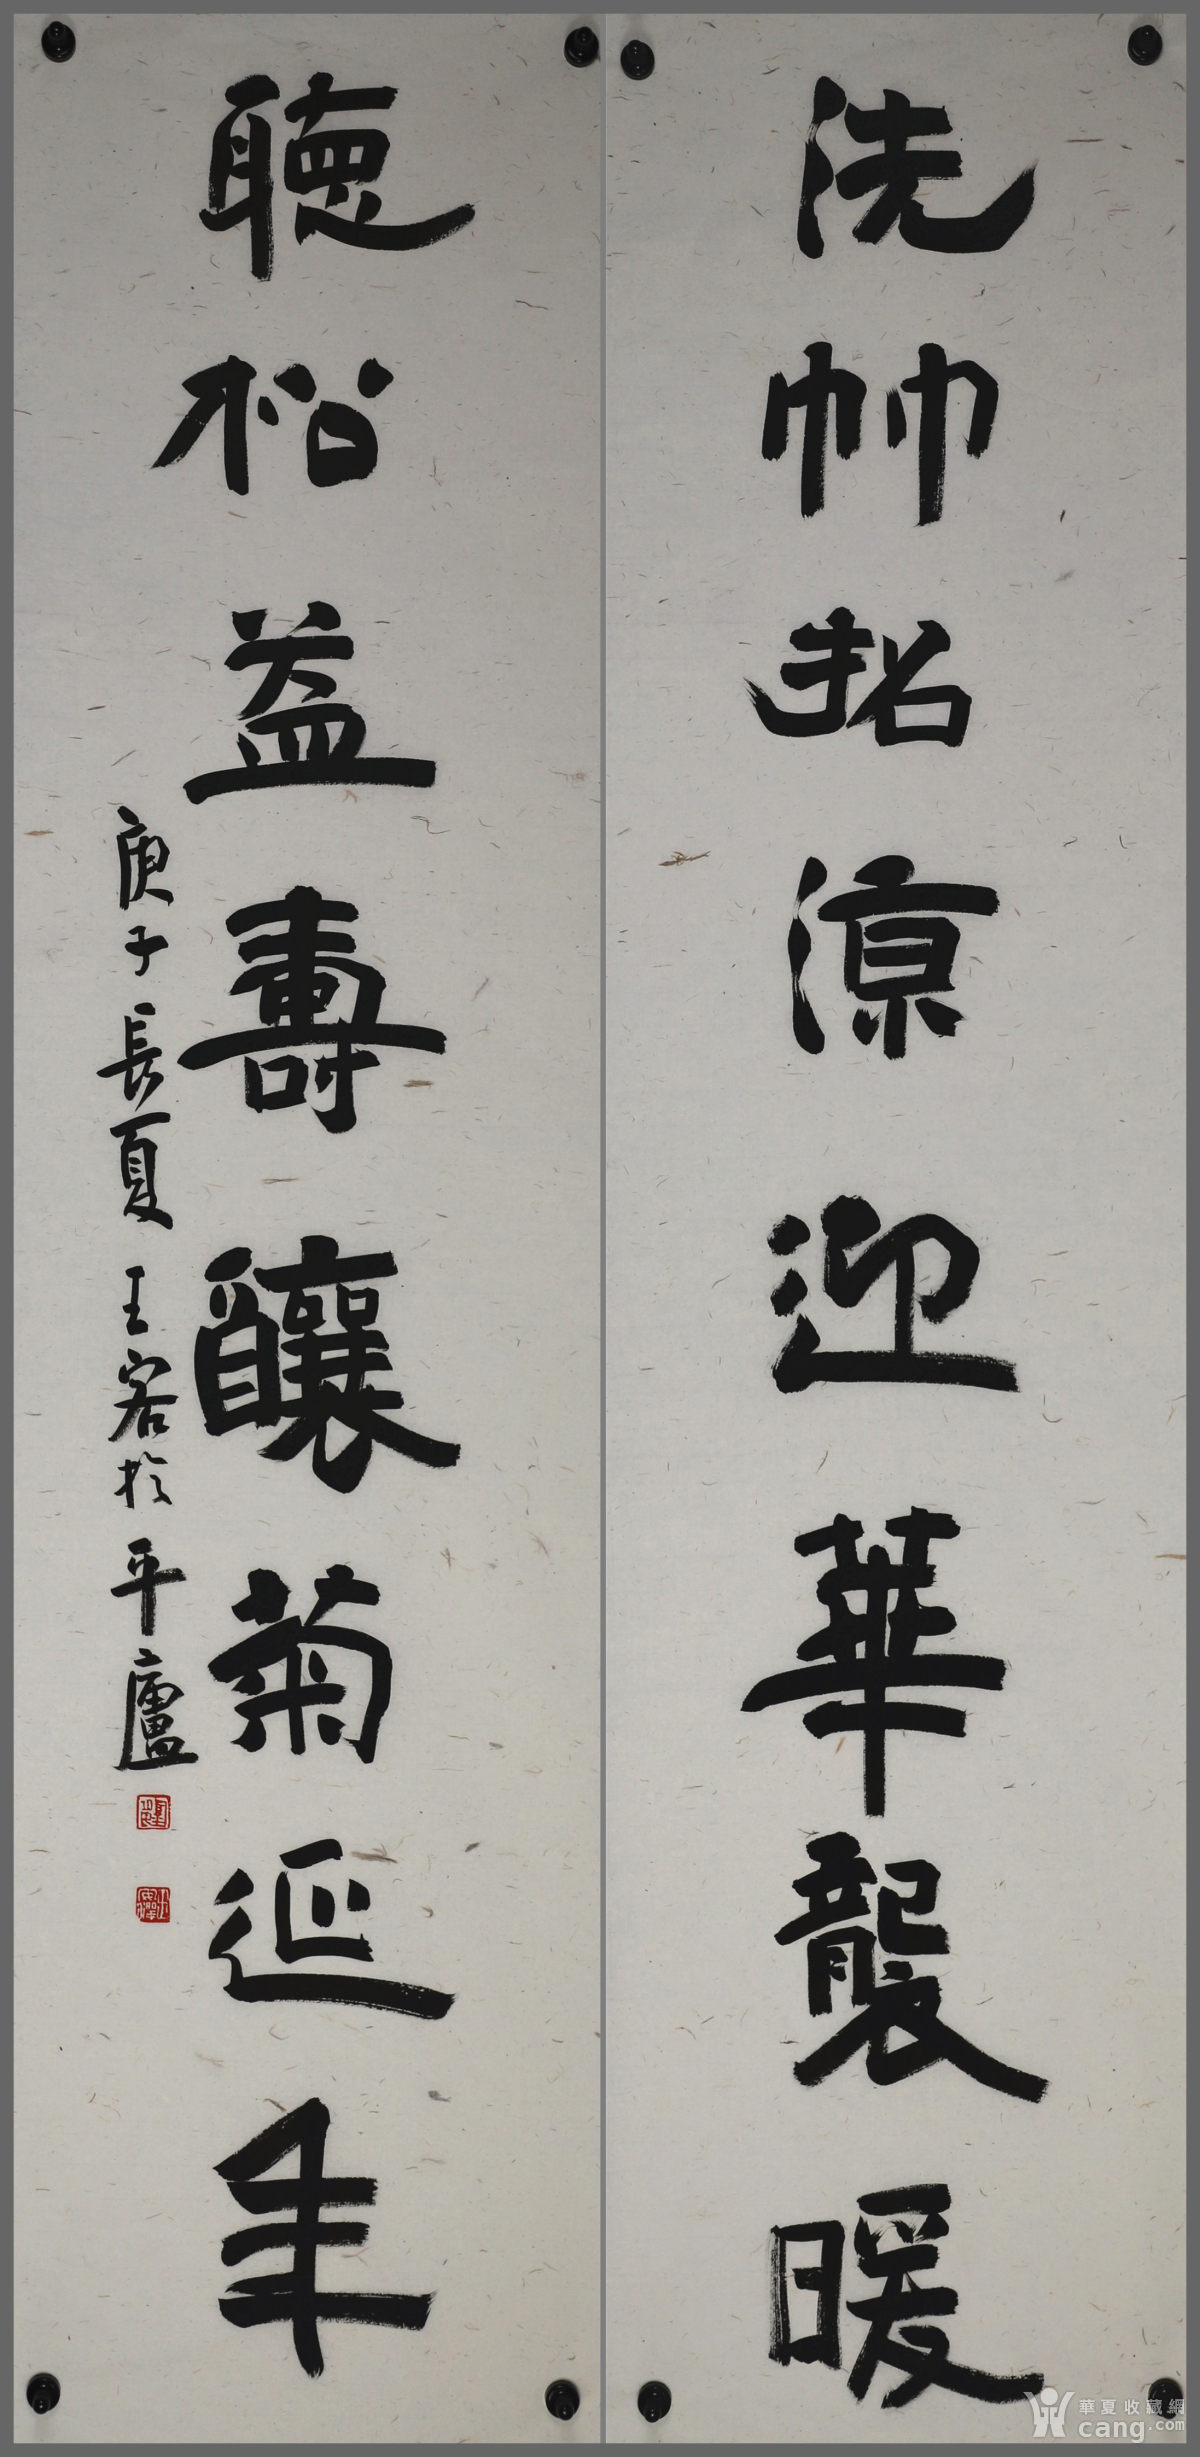 洗竹招涼迎華襲暖
聴松益壽釀菊延年
庚子長夏王客於平廬
華夏收藏網
cang.com